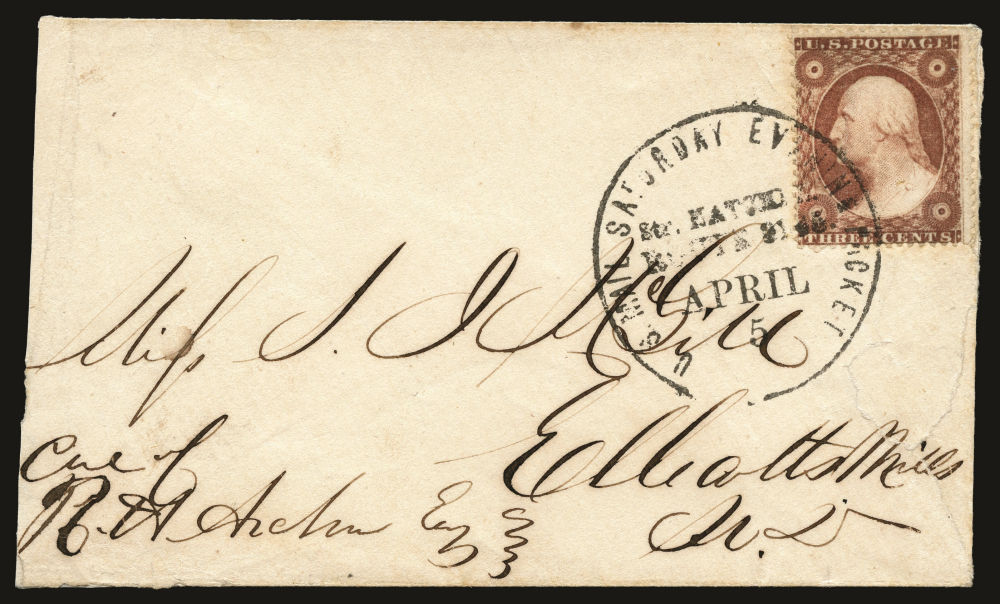 U.S. POSTAGE
THREE CENTS
U.S. MAIL SATURDAY EVENING PACKET
Str.
APRIL
5
Miss S. J. McGill
Ellicotts Mills
M.D
Care of
R. H Archer Esq